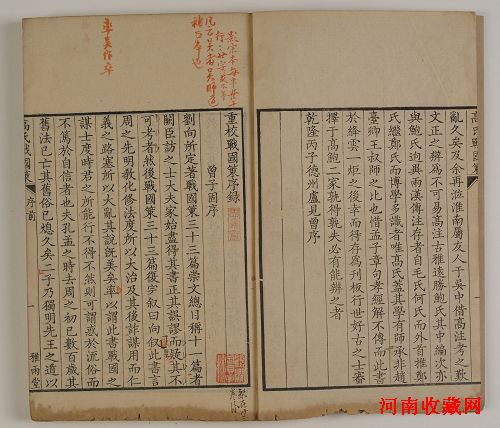 高氏戰國策
亂久矣及余再涖淮南屬友人于吳中借高注考之歎
文正之辨為不可易高注古雅遠勝鮑氏其中編次亦
與鮑氏迥異兩漢傳注存者自毛氏何氏而外首推鄭
氏繼鄭氏而博學多識者唯高氏蓋其學有師承非趙
臺卿王叔師之比也惜孟子章句孝經解不傳而此書
於絳雲一炬之後幸而得存為刊板行世好古之士審
擇于高鮑二家孰得孰失必有能辨之者
乾隆丙子德州盧見曾序
重校戰國策序錄
曾子固序
劉向所定著戰國策三十三篇崇文總目稱十一篇者
闕臣訪之士大夫家始盡得其書正其誤謬而疑其不
可考者然後戰國策三十三篇復完叙曰向叙此書言
周之先明教化修法度所以大治及其後詐謀用而仁
義之路塞所以大亂其說既美矣率以謂此書戰國之
謀士度時君之所能行不得不然則可謂惑於流俗而
不篤於自信者也夫孔孟之時去周之初已數百歲其
舊法已亡其舊俗已熄久矣二子乃獨明先王之道以
高氏戰國策 序 雅雨堂
率吳作卒
河南收藏网